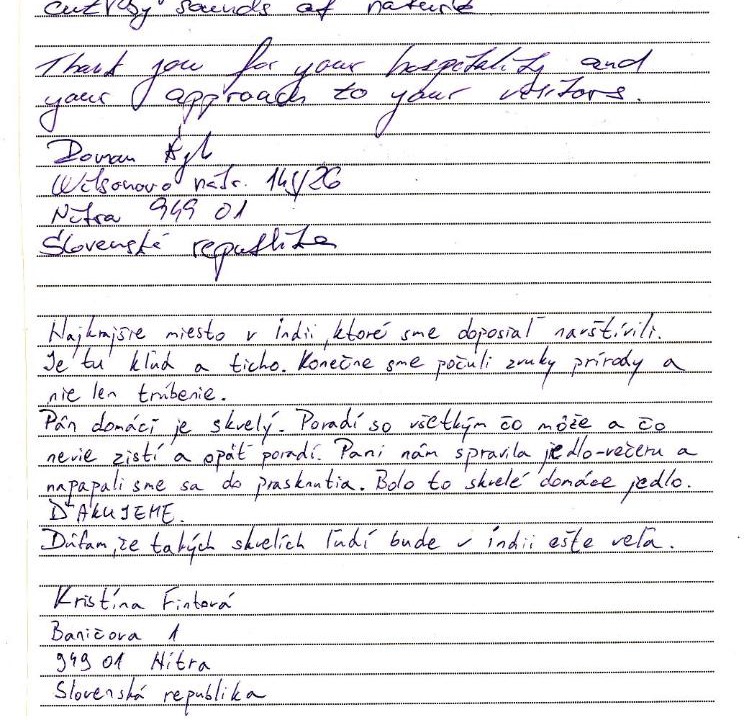 sounds of nature
Thank you for your hospitality and
your approach to your visitors.
Wilsonovo nábr. 145/26
Nitra 949 01
Slovenská republika
Najkrajšie miesto v indii, ktoré sme doposiaľ navštívili.
Je tu kľud a ticho. Konečne sme počuli zvuky prírody a
nie len trúbenie.
Pán domáci je skvelý. Poradí so všetkým čo môže a čo
nevie zistí a opäť poradí. Pani nám spravila jedlo-večeru a
napapali sme sa do prasknutia. Bolo to skvelé domáce jedlo.
ĎAKUJEME.
Dúfam, že takých skvelích ľudí bude v indii ešte veľa.
Kristína Fintová
Baničova 1
949 01 Nitra
Slovenská republika